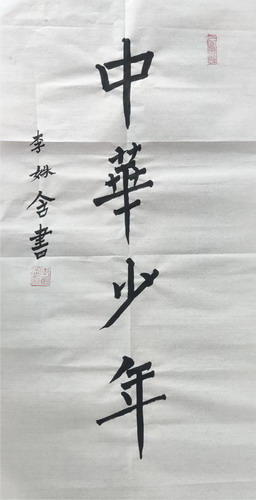 中華少年
李姝含書